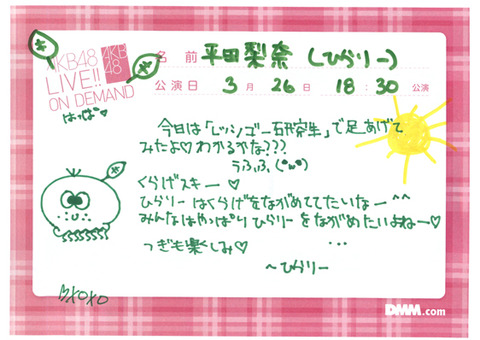 AKB48
LIVE!!
ON DEMAND
AKB
48
はっぱ
名 前 平田梨奈(ひらりー)
公演日 3月 26日 18:30 公演
今日は「レッツゴー研究生」で足あげて
みたよ♡わかるかな???
うふふ(^ω^)
くらげスキー♡
ひらりーはくらげをながめててたいなー^^
みんなはやっぱりひらりーをながめたいよねー♡
...
つぎも楽しみ♡
〜ひらりー
XOXO
DMM.com